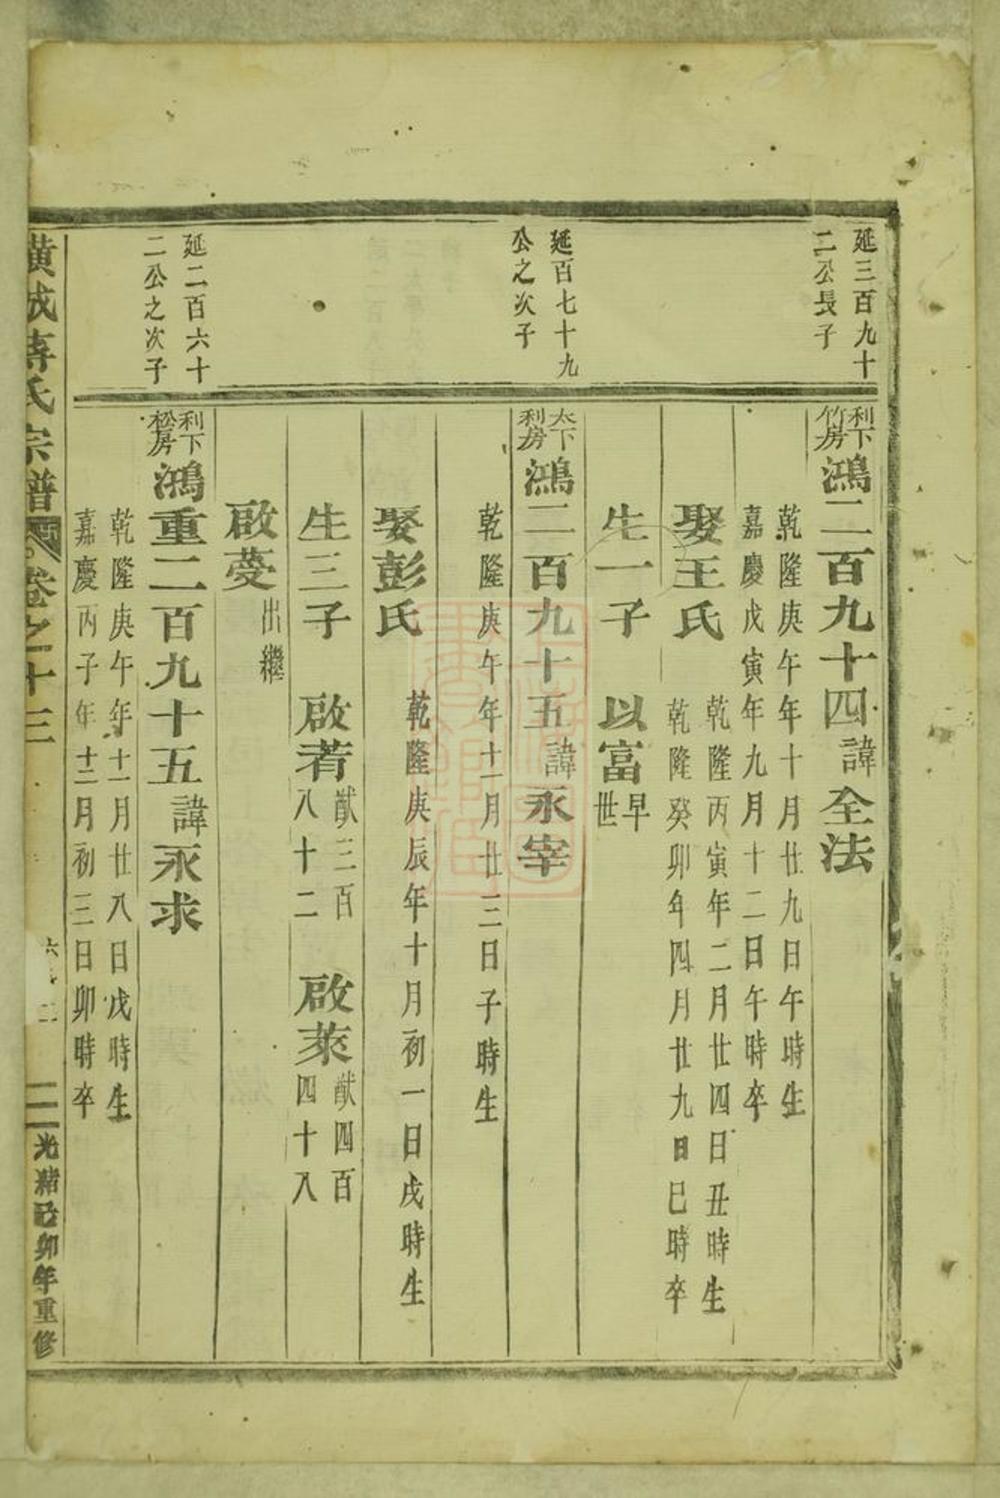 延三百九十
二公長子
利下
竹房
鴻二百九十四諱全法
乾隆庚午年十月廿九日午時生
嘉慶戊寅年九月十二日午時卒
娶王氏
乾隆丙寅年二月廿四日丑時生
乾隆癸卯年四月廿九日巳時卒
生一子 以富
早
世
延百七十九
公之次子
太下
利房
鴻二百九十五諱永宰
乾隆庚午年十一月廿三日子時生
娶彭氏
乾隆庚辰年十月初一日戌時生
生三子 啟若
猷三百
八十二
啟萊
猷四百
四十八
啟蓃
出繼
延二百六十
二公之次子
利下
松房
鴻重二百九十五諱永求
乾隆庚午年十一月廿八日戊時生
嘉慶丙子年十二月初三日卯時卒
橫城蔣氏宗譜
卷之十三
光緒己卯年重修